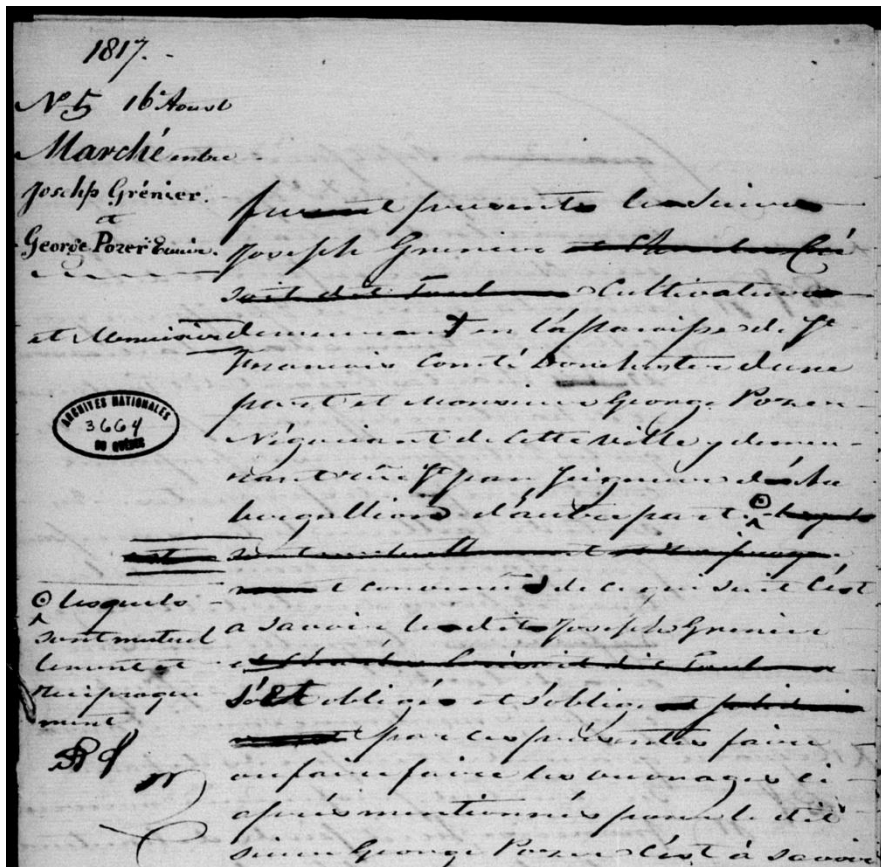 1817.
No 5 16 Aoust
Marché entre
Joseph Grénier.
et
George Pozer Ecuier.
et Menuisier
ARCHIVES NATIONALES
3664
DU QUÉBEC
lesquels
sont mutuel
lement et
réciproque
ment
furent présents les Sieurs
Joseph Grenier et Charles
soit dit Toulouse Cultivateurs
demeurant en la paroisse de St
francois Comté Dorchester d'une
part et Monsieur George Pozer
Négociant de cette ville y demeu-
rant rüe St Jean Seigneur
d'autre part lesquels
sont mutuellement et réciproque
ment convenus de ce qui suit C'est
a Savoir le dit Joseph Grenier
et Charles dit Toulouse
s'est obligé et s'oblige
par ces présentes faire
ou faire faire les ouvrages ci-
après mentionnés pour le dit
sieur George Pozer C'est à Savoir